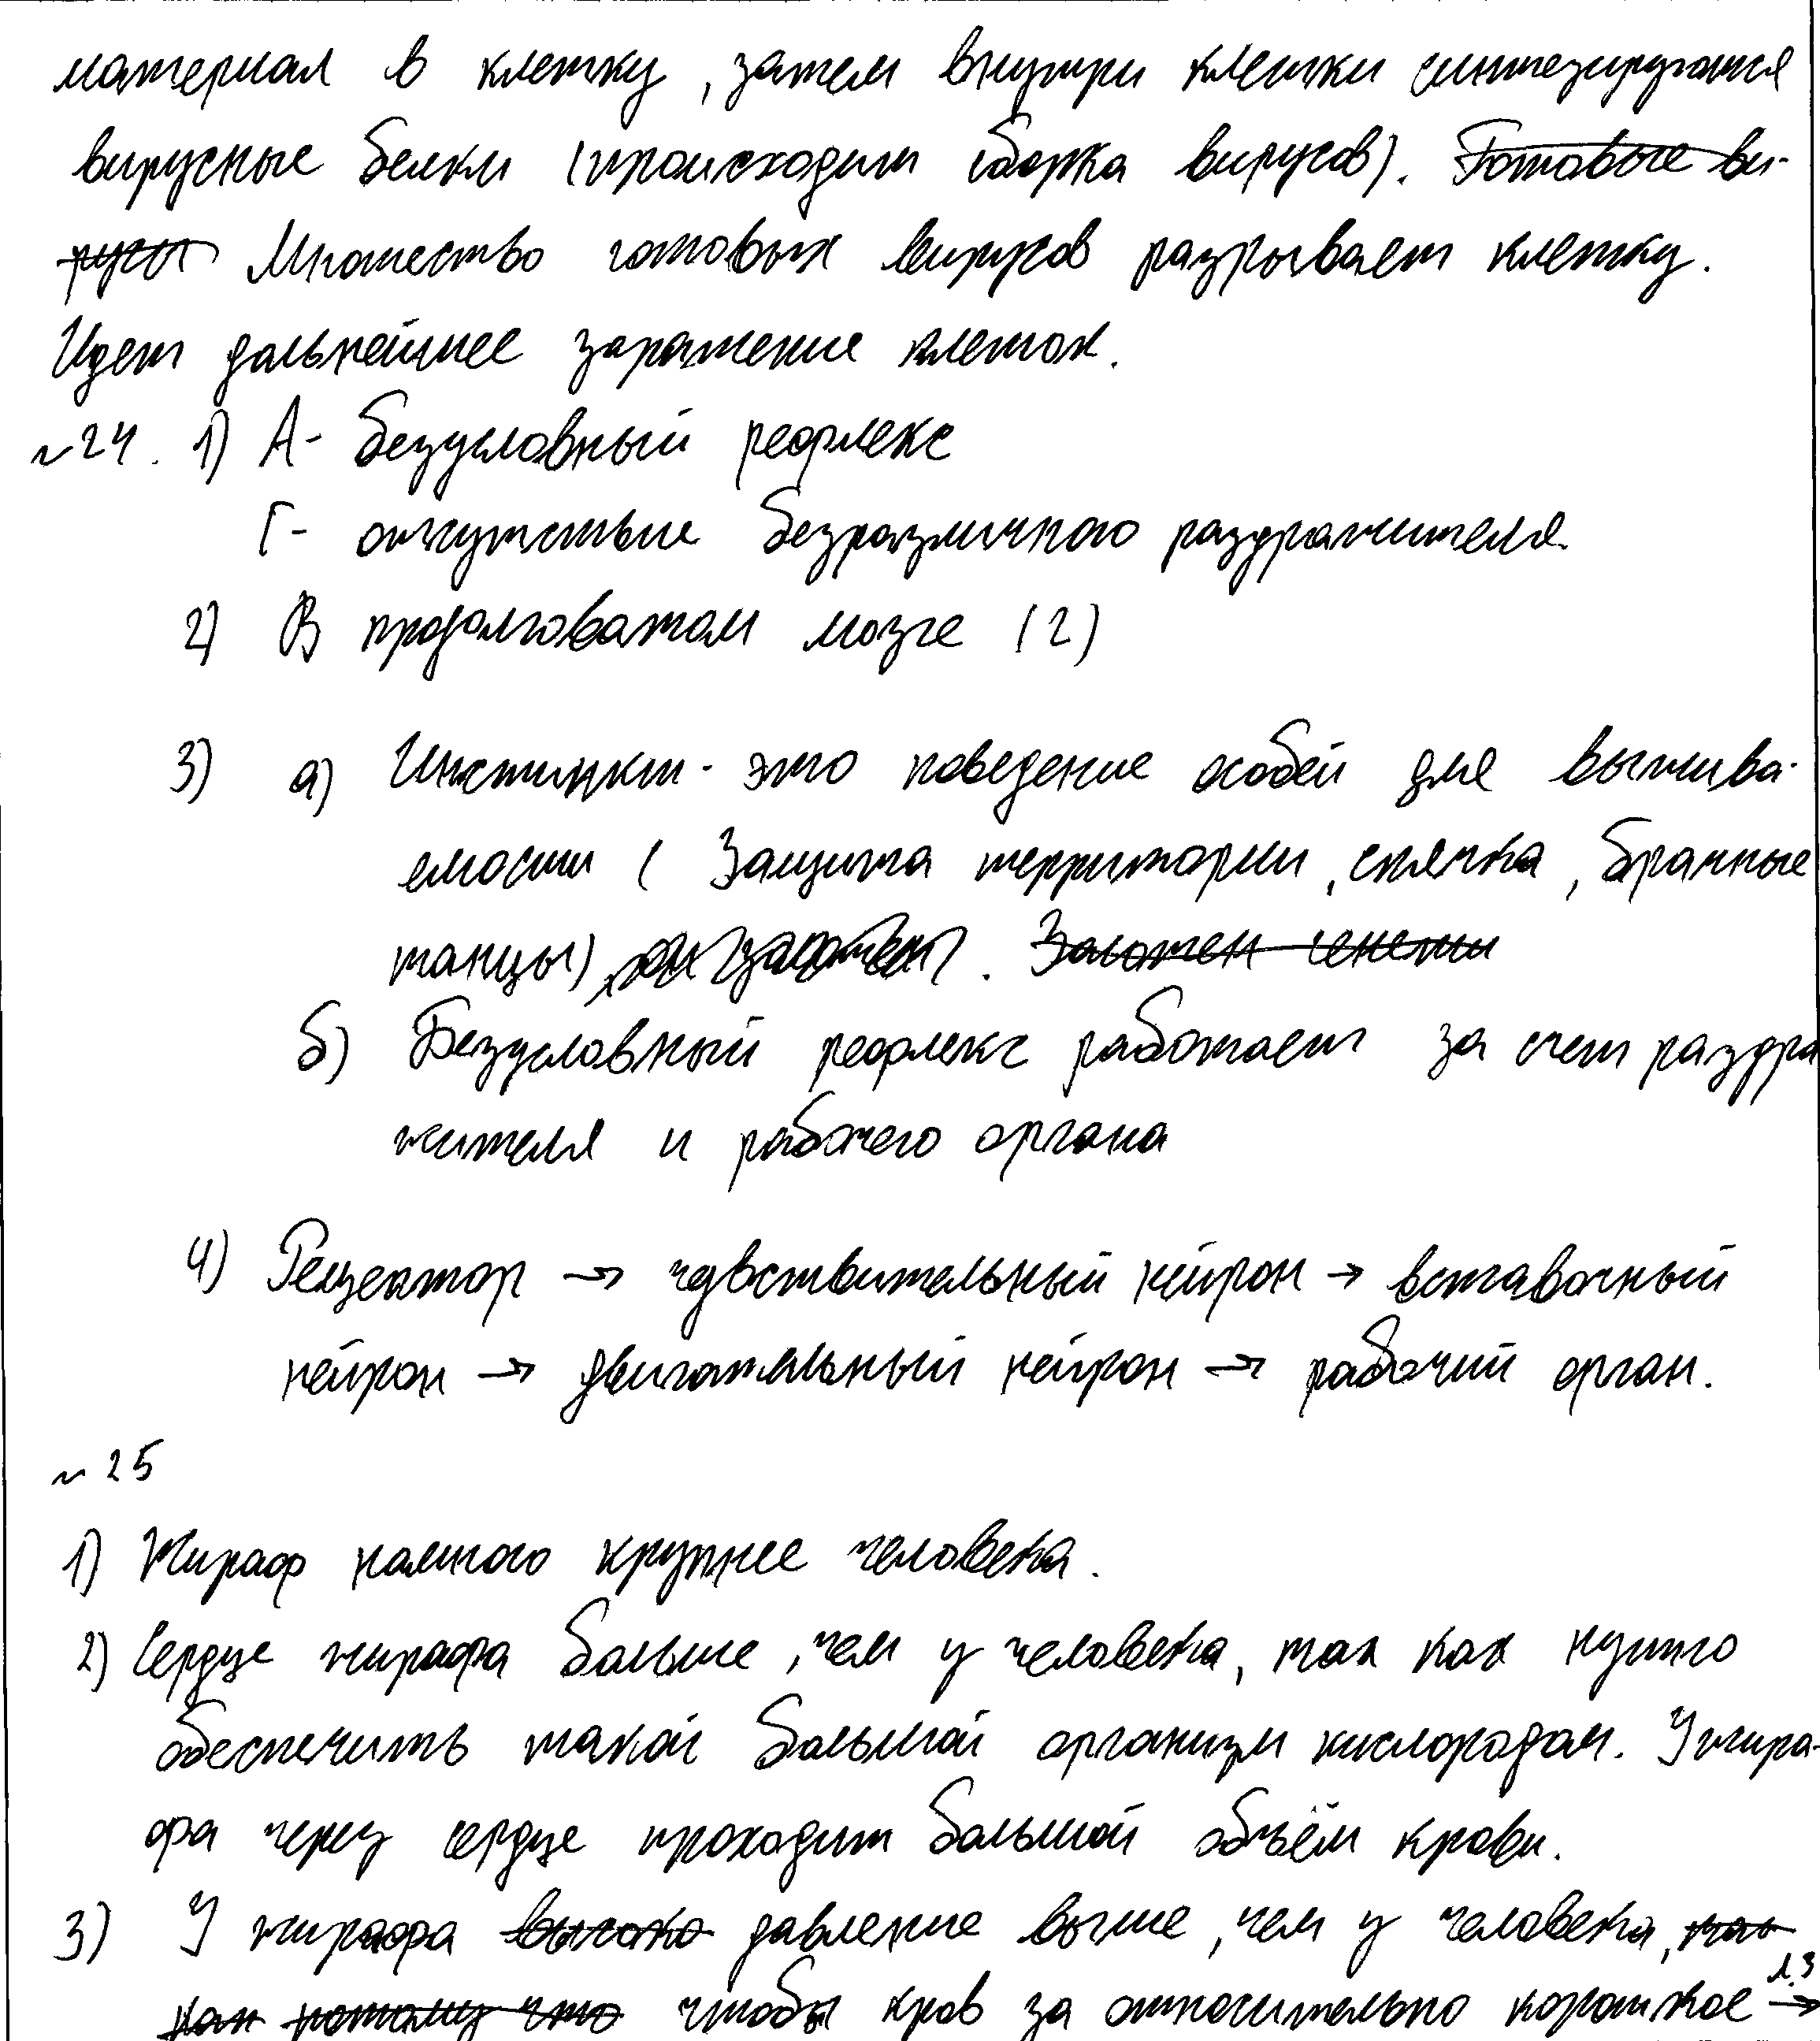 материал в клетку, затем внутри клетки синтезируются
вирусные белки (происходит сборка вирусов). Готовые ви-
русы Множество готовых вирусов разрывает клетку.
Идет дальнейшее заражение клеток.
№24. 1) А- безусловный рефлекс
Г- отсутствие безразличного раздражителя.
2) В продолговатом мозге (2)
3) а) Инстинкт - это поведение особей для выжива-
емости (Защита территории, спячка, брачные
танцы) . Заложен генети
б) Безусловный рефлекс работает за счет раздра
жителя и рабочего органа
4) Рецептор → чувствительный нейрон → вставочный
нейрон → двигательный нейрон → рабочий орган.
№25
1) Жираф намного крупнее человека.
2) Сердце жирафа больше, чем у человека, так как нужно
обеспечить такой большой организм кислородом. У жира-
фа через сердце проходит большой объём крови.
3) У жирафа высоко давление выше, чем у человека, так
как потому что чтобы кров за относительно короткое л.3 →